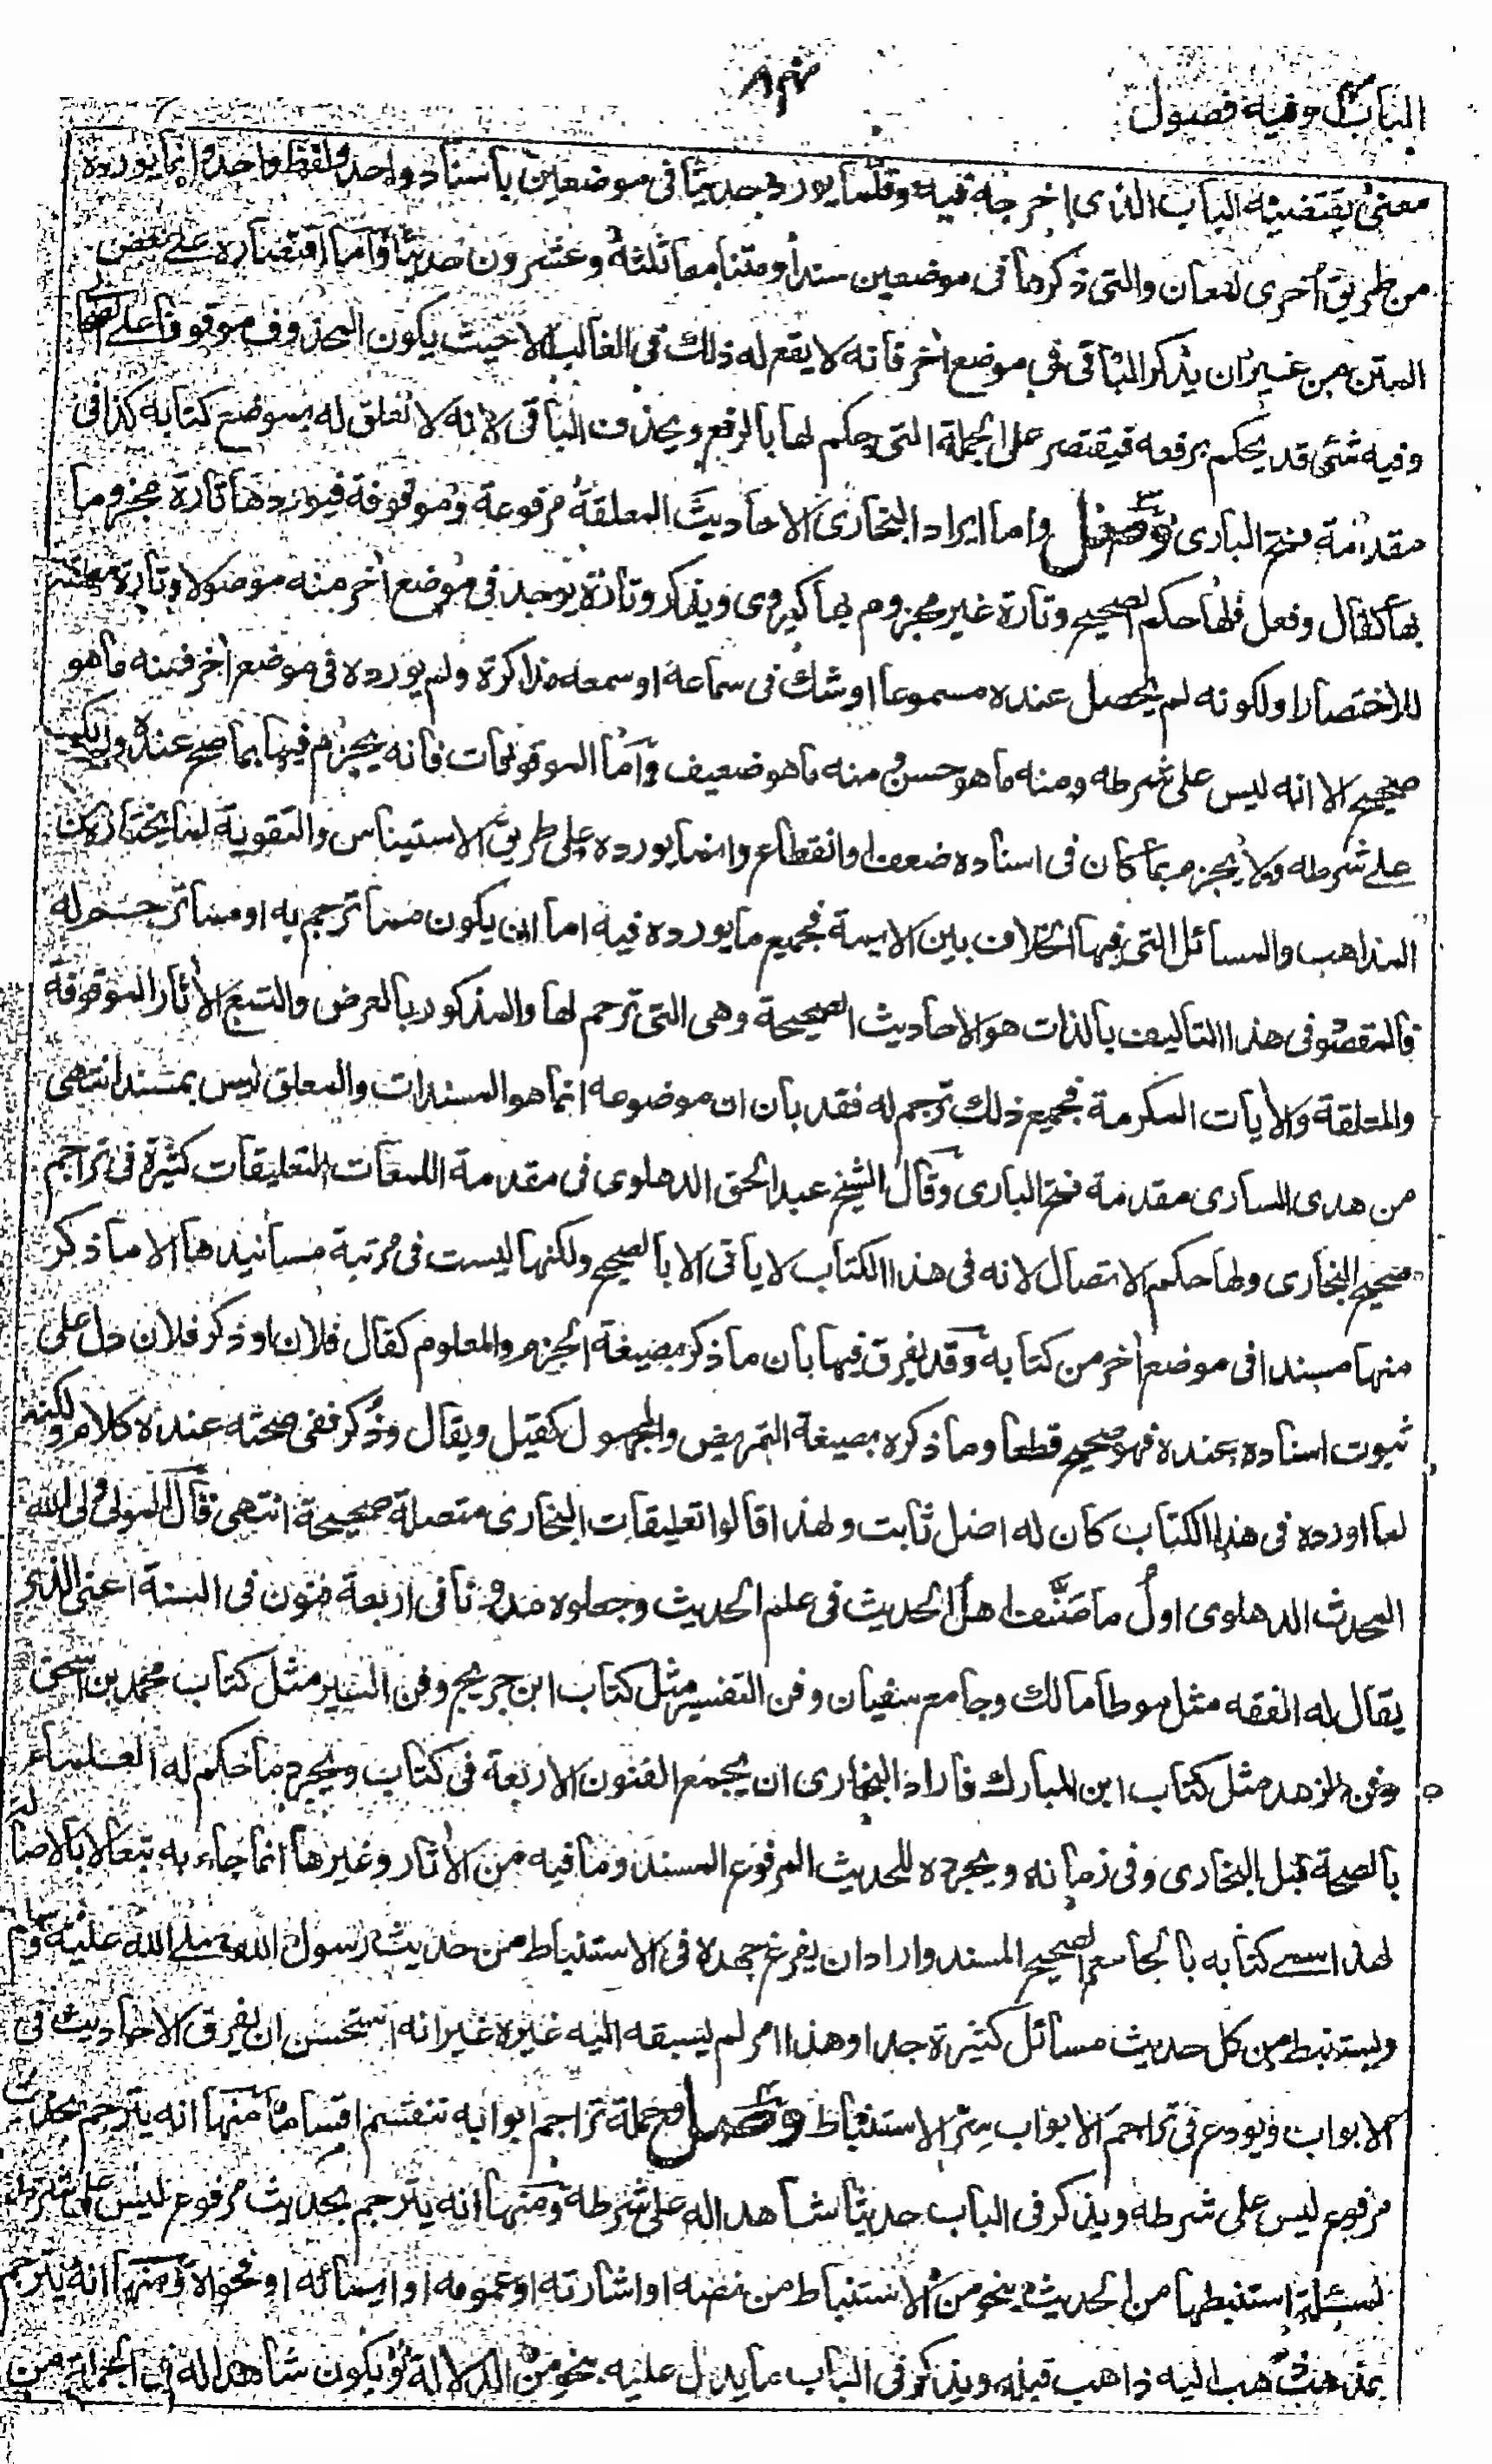 ٨٣
الباب وفيه فصول
معنى يقتضيه الباب الذى اخرجه فيه وقلما يورد حديثا فى موضعين باسناد واحد ولفظ واحد وانما يورده
من طريق اخرى لمعان والتى ذكرها فى موضعين سندا ومتنا معا ثلثة وعشرون حديثا وآما اقتصاره على بعض
المتن من غير ان يذكر الباقى فى موضع اخر فانه لا يقع له ذلك فى الغالب الا حيث يكون المحذوف موقوفا على الصحابى
وفيه شئ قد يحكم برفعه فيقتصر على الجملة التى حكم لها بالرفع ويحذف الباقى لانه لا تعلق له بموضع كتابه كذا فى
مقدمة فتح البارى وصل واما ايراد البخارى الاحاديث المعلقة مرفوعة وموقوفة فيوردها تارة مجزوما
بها كقال وفعل فلها حكم الصحيح وتارة غير مجزوم بها كيروى ويذكر وتارة يوجد فى موضع اخر منه موصولا وتارة معلقا
للاختصار او لكونه لم يحصل عنده مسموعا او شك فى سماعه او سمعه مذاكرة ولم يورده فى موضع اخر فمنه ما هو
صحيح الا انه ليس على شرطه ومنه ما هو حسن ومنه ما هو ضعيف وآما الموقوفات فانه يجزم فيها بما صح عنده ولو لم يكن
على شرطه ولا يجزم بما كان فى اسناده ضعف او انقطاع وانما يورده على طريق الاستيناس والتقوية لما يختاره من
المذاهب والمسائل التى فيها الخلاف بين الائمة فجميع ما يورده فيه اما ان يكون مما ترجم به او مما ترجم له
فالمقصود فى هذا التاليف بالذات هو الاحاديث الصحيحة وهى التى ترجم لها والمذكور بالعرض والتبع الآثار الموقوفة
والمتلقة والآيات المكرمة فجميع ذلك ترجم له فقد بان ان موضوعه انما هو المسندات والمعلق ليس بمسند انتهى
من هدى السارى مقدمة فتح البارى وقال الشيخ عبد الحق الدهلوى فى مقدمة اللمعات التعليقات كثيرة فى تراجم
صحيح البخارى ولها حكم الاتصال لانه فى هذا الكتاب لا ياتى الا بالصحيح ولكنها ليست فى مرتبة مسانيدها الا ما ذكر
منها مسندا فى موضع اخر من كتابه وقد يفرق فيها بان ما ذكر بصيغة الجزم والمعلوم كقال فلان او ذكر فلان دل على
ثبوت اسناده عنده فهو صحيح قطعا وما ذكره بصيغة التمريض والمجهول كقيل ويقال وذكر ففى صحته عنده كلام ولكنه
لما اورده فى هذا الكتاب كان له اصل ثابت ولهذا قالوا تعليقات البخارى متصلة صحيحة انتهى قال المولى ولى الله
المحدث الدهلوى اول ما صنف اهل الحديث فى علم الحديث وجعلوه مدونا فى اربعة فنون فى السنة اعنى الذى
يقال له الفقه مثل موطا مالك وجامع سفيان وفن التفسير مثل كتاب ابن جريج وفن السير مثل كتاب محمد بن اسحق
وفن الزهد مثل كتاب ابن المبارك فاراد البخارى ان يجمع الفنون الاربعة فى كتاب ويجرد ما حكم له العلماء
بالصحة قبل البخارى وفى زمانه ويجرده للحديث المرفوع المسند وما فيه من الآثار وغيرها انما جاء به تبعا لا بالاصالة
لهذا سمى كتابه بالجامع الصحيح المسند واراد ان يفرغ جهده فى الاستنباط من حديث رسول الله صلى الله عليه وسلم
ويستنبط من كل حديث مسائل كثيرة جدا وهذا امر لم يسبقه اليه غيره غير انه استحسن ان يفرق الاحاديث فى
الابواب ويودع فى تراجم الابواب سر الاستنباط وصل جملة تراجم ابوابه تنقسم اقساما منها انه يترجم بحديث
مرفوع ليس على شرطه ويذكر فى الباب حديثا شاهدا له على شرطه ومنها انه يترجم بحديث مرفوع ليس على شرطه
لمسئلة استنبطها من الحديث بنحو من الاستنباط من نصه او اشارته او عمومه او ايمائه او فحواه ومنها انه يترجم
بمذهب ذهب اليه ذاهب قبله ويذكر فى الباب ما يدل عليه بنحو من الدلالة ويكون شاهدا له فى الجملة من